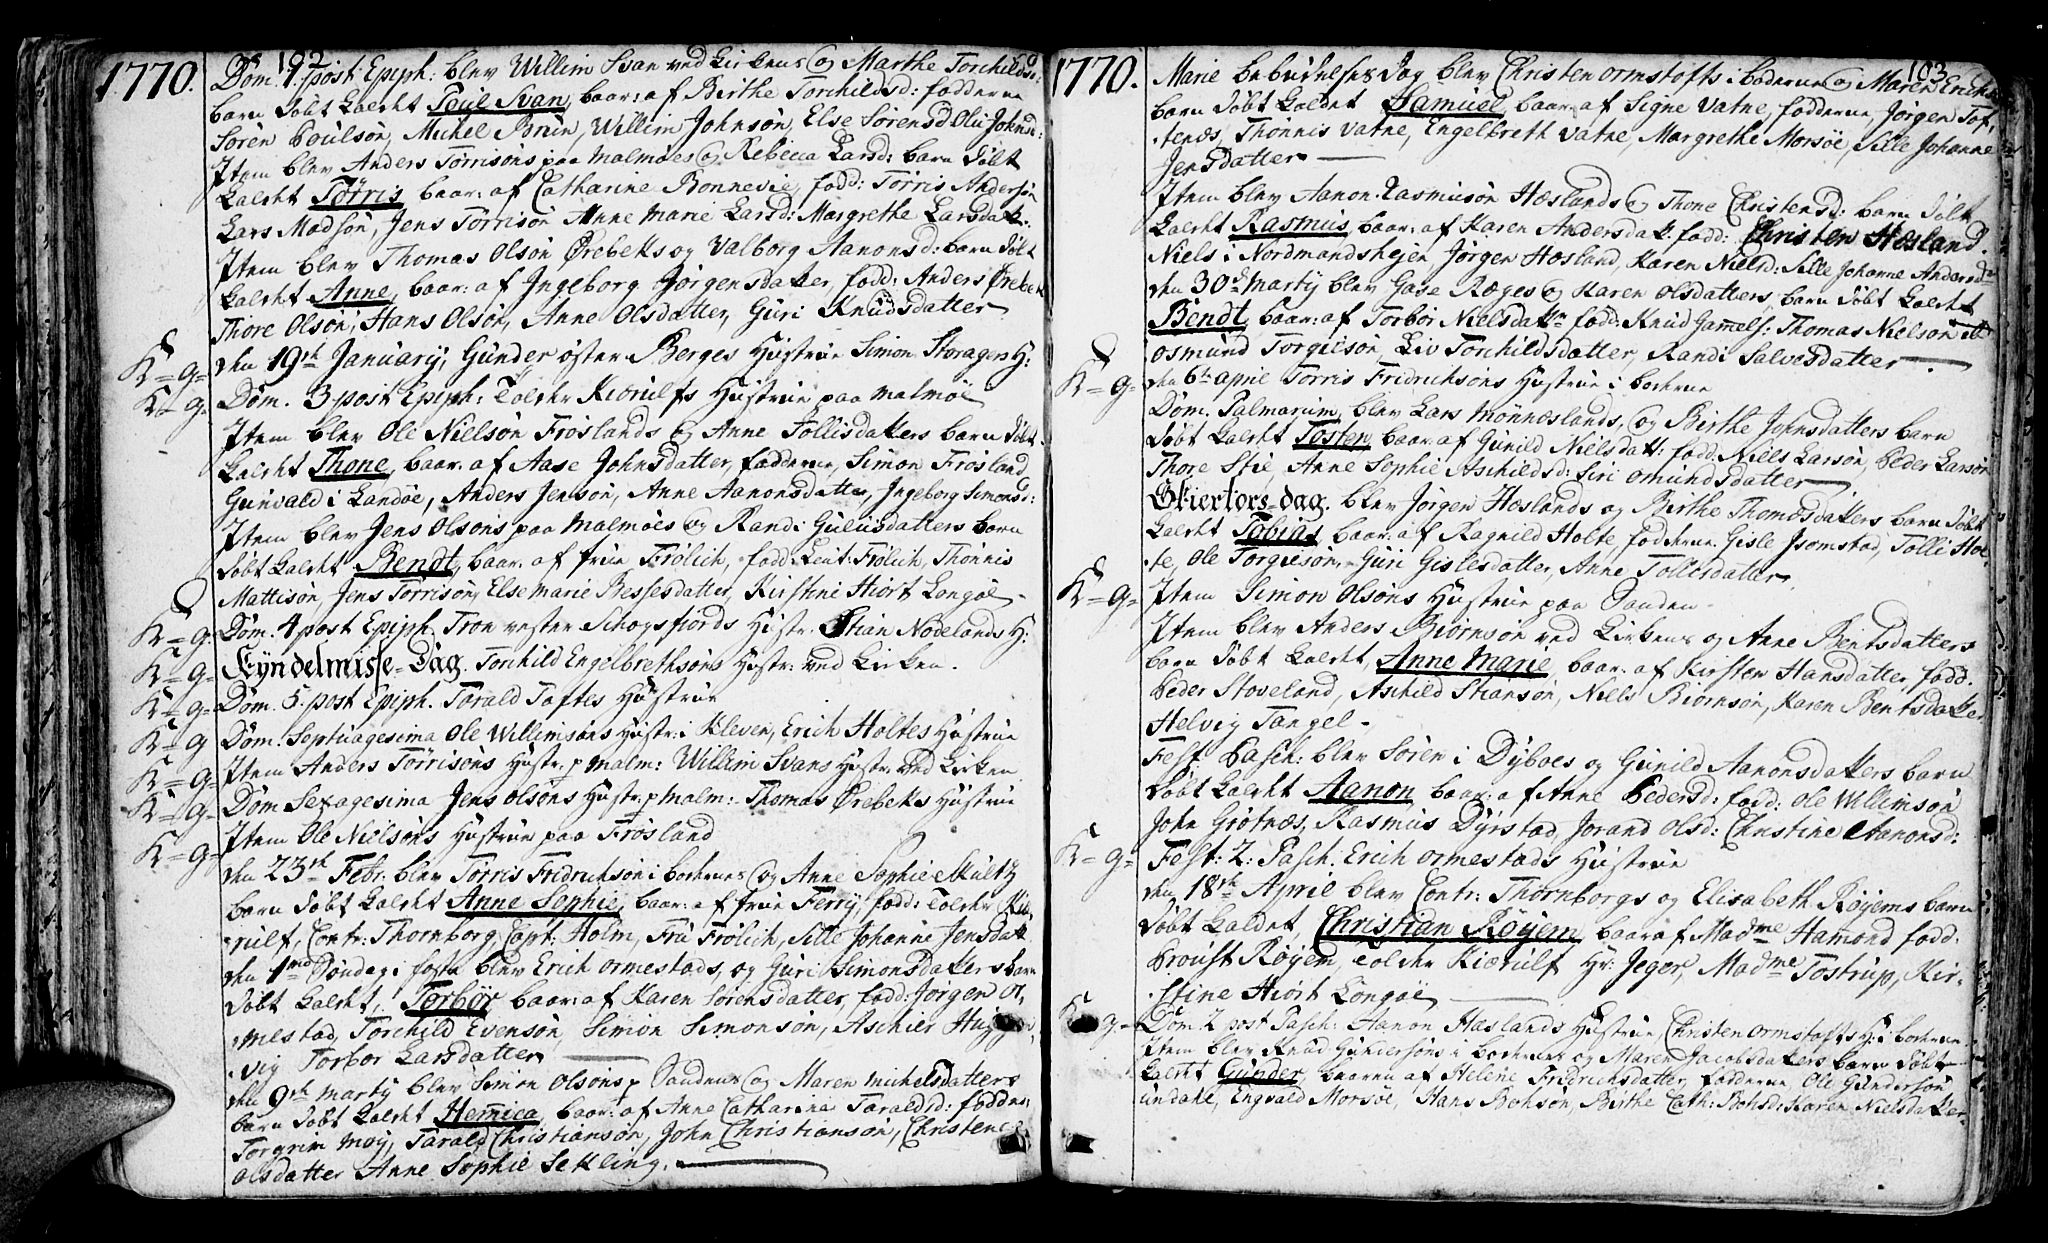 1770.
102
Dom. 1. post Epiph: blev Willim Svan ved Kirkens og Marthe Torchildsd:
barn døbt kaldt Poul Svan, baar: af Birthe Torchildsd: fadderne
Søren Poulsøn, Michel Bruun, Willim Johnsøn, Else Sørensd Oliv Johnsd:
Item blev Anders Tørrisøns paa Malmøes og Rebecca Larsd: barn døbt
kaldt Tørris, baar: af Catharine Bonnevie, fadd: Tørris Andersøn
Lars Madsøn, Jens Tørrisøn Anne Marie Larsd: Margrethe Larsdatt.
Item blev Thomas Olsøn Ørebeks og Valborg Aanonsd: barn døbt
kaldt Anne, baar: af Ingeborg Jørgensdatter, fadd: Anders Ørebek
Thore Olsøn, Hans Olsøn, Anne Olsdatter, Guri Knudsdatter
K=g= den 19de January, Gunder øster Berges Hustrue Simon Storagers H:
K=g= Dom. 3 post Epiph: Tolder Kiørulfs Hustrue paa Malmøe
Item blev Ole Nielsøn Frøslands og Anne Tollisdatters barn døbt
kaldt Thone, baar: af Aase Johnsdatter, fadderne, Simon Frøsland
Gunvald i Landøe, Anders Jensøn, Anne Aanonsdatter, Ingeborg Simonsd:
Item blev Jens Olsøns paa Malmøes og Randi Gulusdatters barn
døbt kaldt Bendt, baar: af frue Frølich, fadd Leut: Frølich, Thonnis
Mattisøn, Jens Tørrisøn, Else Marie Bessesdatter, Kirstine Hiort Longøe
K=g= Dom. 4 post Epiph. Tron vester Schogsfiords Hustr. Stian Nødelands H:
K=g= Kyndelmisse-Dag. Torchild Engelbrethsøns Hustr: ved Kirken.
K=g= Dom. 5. post Epiph. Tarald Toftes Hustrue
K=g Dom. Septuagesima Ole Willimsøns Hustr: i Kleven, Erich Holtes Hustrue
K=g= Item Anders Tørrisøns Hustr. p Malm: Willim Svans Hustr. ved Kirken
K=g= Dom Sexagesima Jens Olsøns Hustr. p Malm: Thomas Ørebeks Hustrue
K=g= Item Ole Nielsøns Hustrue paa Frøsland
den 23de Febr. blev Torris Fridrichsøn i borhenes og Anne Sophie Skultz
barn døbt kaldt Anne Sophie, baar: af frue Ferry, fadd: Tolder Kiø-
rulf, Contr: Thornborg, Capt: Holm, Fru Frølich, Sille Johanne Jensdatt
den 1ste Søndag i faste blev Erich Ormestads, og Guri Simonsdatters barn
døbt kaldt, Torbor, baar: af Karen Sørensdatter, fadd: Jørgen Or,
mestad, Torchild Evensøn, Simon Simonsøn, Aschier
vig Torbor Larsdatter
den 9de Marty blev Simon Olsøns p Sandens og Maren Michelsdatters
barn døbt kaldt Hemica, baar: af Anne Catharina Taraldsd: fadd
Torgrim Møy, Tarald Christiansøn, John Christiansøn, Christence
Olsdatter Anne Sophie Sekling.
1770.
103
Marie bebudelses dag blev Christen Ormstofts i boderne og Maren Erichs
barn døbt kaldet Samuel, baar: af Signe Vatne, fadderne, Jørgen Tof,
tenæs, Thønnis Vatne, Engelbreth Vatne, Margrethe Morsøe, Sille Johanne
Jensdatter
Item blev Aanon Rasmusøn Hæslands og Thone Christensd: barn døbt
kaldt Rasmus, baar: af Karen Andersdatt. fadd: Christen Hæsland.
Niels i Nordmandshejen Jørgen Hæsland, Karen Nielsd: Sille Johanne Andersd
den 30de Marty blev Gase Ræges og Karen Olsdatters, barn døbt kaldt
Bendt, baar: af Torbor Nielsdattr fadd: Knud Gamels: Thomas Nielsøn
Osmund Torgiusøn, Liv Torchildsdatter, Randi Salvesdatter
K=g= den 6te april Torris Fridrichsøns Hustrue i borhene
Dom. Palmarum, blev Lars Mønnæslands, og Birthe Johnsdatters barn
døbt kaldt Tosten, baar: af Gunild Nielsdatt: fadd: Niels Larsøn, Peder Larsøn
Thore Stie, Anne Sophie Aschildsd: Siri Omundsdatter
Skiertors-dag. blev Jørgen Hæslands og Birthe Thomæsdatters barn døbt
kaldt Tobias, baar: af Ragnild Holte, fadderne. Gisle Isomstad, Tolli Hol
te, Ole Torgiusøn, Guri Gislesdatter, Anne Tollisdatter,
K=g= Item Simon Olsøns Hustrue paa Sanden
Item blev Anders Biørnsøn ved Kirkens og Anne Bentsdatters
barn døbt kaldt, Anne Marie baar: af Kirsten Hansdatter, fadd.
Peder Stoveland, Aschild Stiansøn, Niels Biørnsøn, Karen Bentsdatter
Helvig Tangel
Fest Pasch: blev Søren i Dyboes og Gunild Aanonsdatters barn
døbt kaldt Aanon, baar: af Anne Pedersd: fadd: Ole Willimsøn
John Grøtnæs, Rasmus Dyrstad, Jorand Olsd: Christine Aanonsd:
K=g= Fest: 2: Pasch. Erich Ormestads Hustrue
den 18de April blev Contr: Thornborgs og Elisabeth Røyems barn
døbt kaldet, Christian Røyem, baar af Madme Hamond fadd:
Proust Røyem, Tolder Kiærulf Hr: Jeger, Madme Tostrup, Kir-
stine Hiort Longøe
K=g= Dom. 2 post Pasch: Aanon Hæslands Hustrue Christen Ormstofts H: i borhene
Item blev Knud Gundersøns i borhenes og Maren Jacobsdatters barn døbt
kaldt Gunder, baaren af Helene Fridrichsdatter, fadderne, Ole Gundersøn
undahl, Engvald Morsøe, Hans Bohsøn, Birthe Cath: Bohsd: Karen Nielsdatter